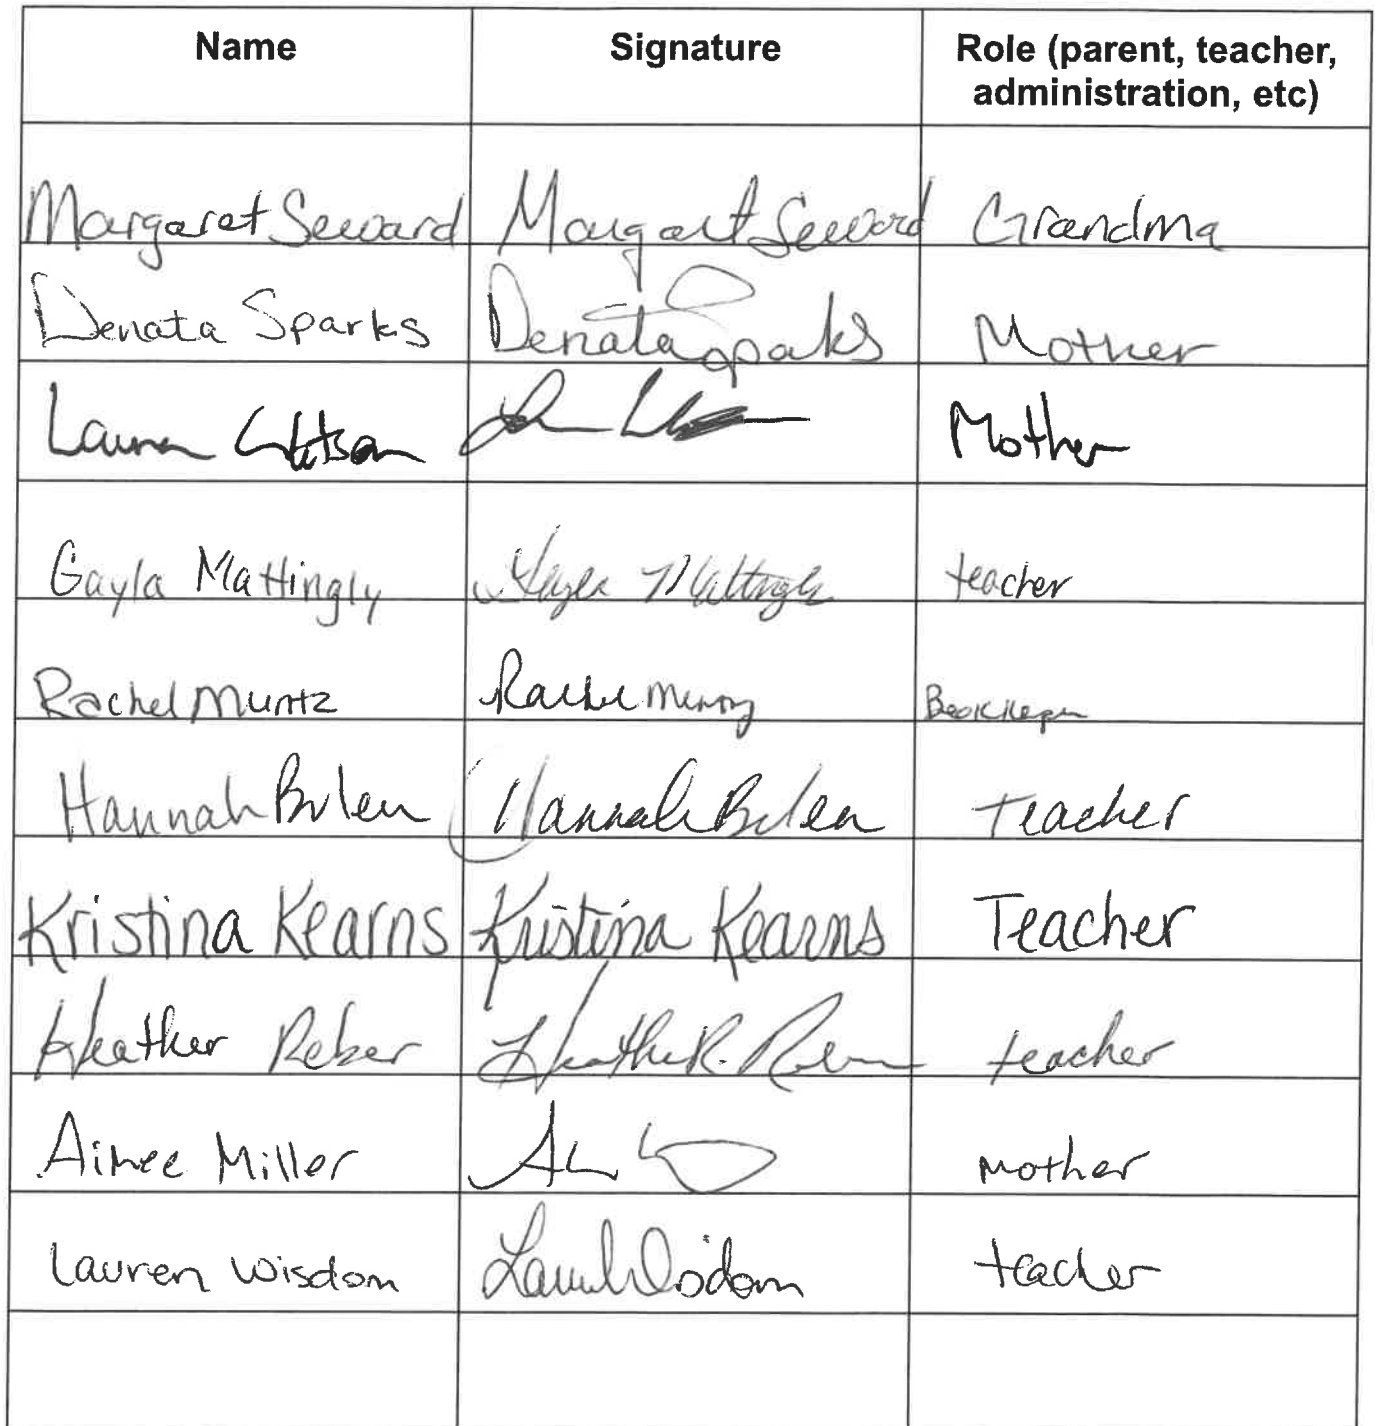 Name Signature Role (parent, teacher,
administration, etc)
Margaret Seward Margaret Seward Grandma
Denata Sparks Denata Sparks Mother
Lauren Mother
Gayla Mattingly Gayla Mattingly teacher
Rachel Muntz Rachel Muntz Bookkeeper
Hannah Bolen Hannah Bolen Teacher
Kristina Kearns Kristina Kearns Teacher
Heather Reber Heather R. Reber teacher
Aimee Miller Mother
Lauren Wisdom Lauren Wisdom teacher